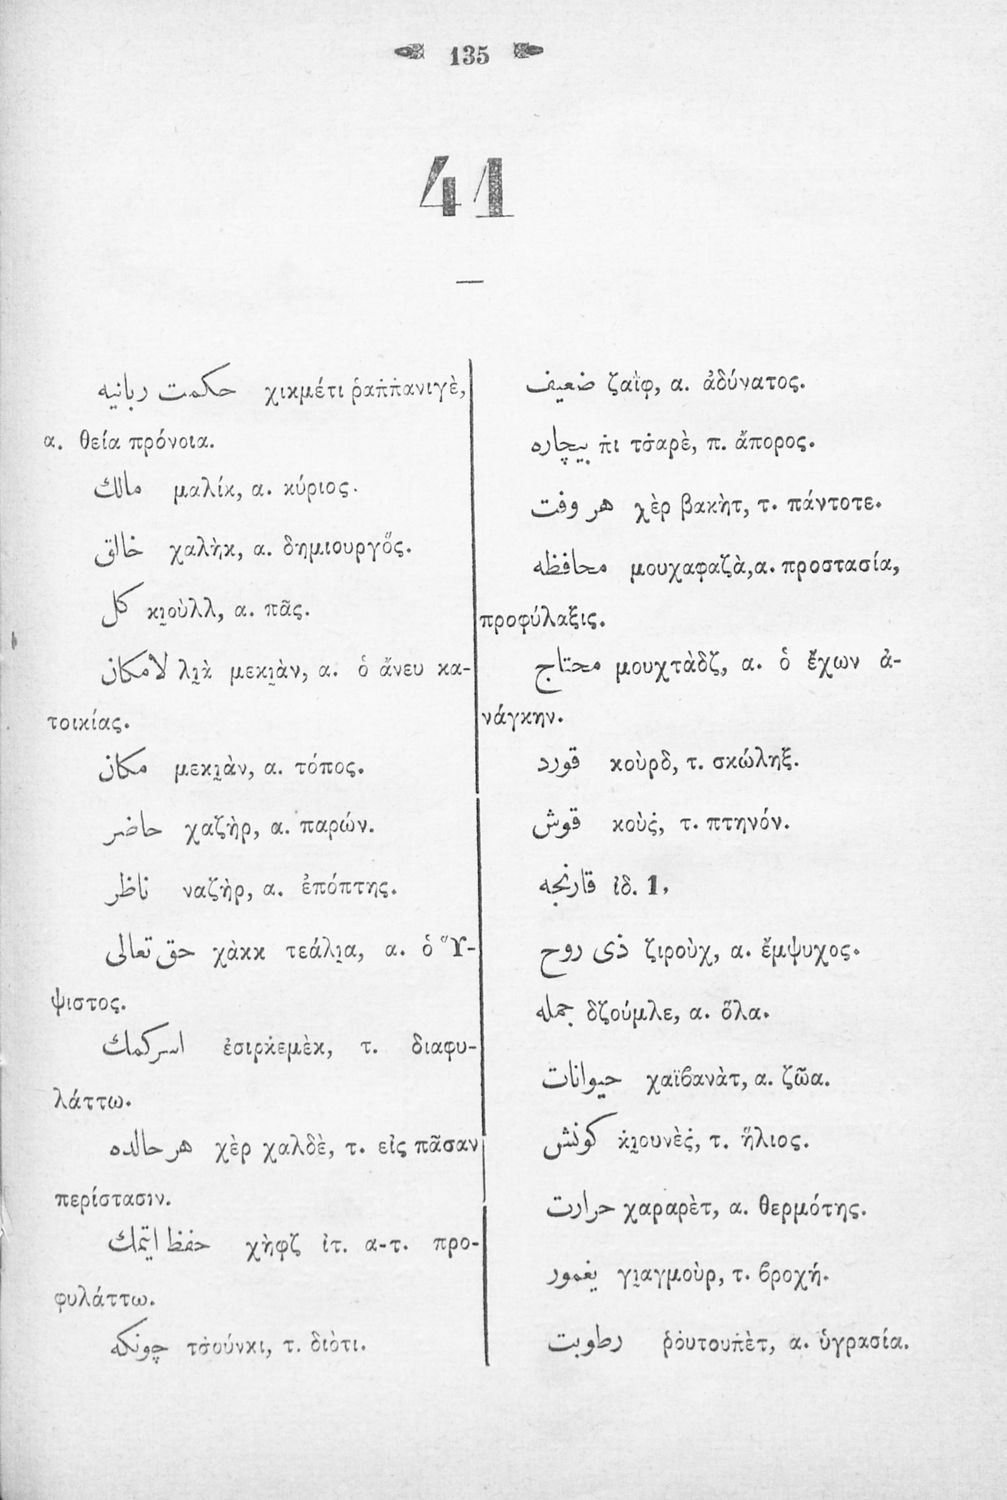 135
41
حكمت ربانيه χικμέτι ῥαππανιγὲ,
α. θεία πρόνοια.
مالك μαλίκ, α. κύριος.
خالق χαλὴκ, α. δημιουργὅς.
كل κιοὺλλ, α. πᾶς.
لامكان λιὰ μεκιὰν, α. ὁ ἄνευ κα-
τοικίας.
مكان μεκιὰν, α. τόπος.
حاضر χαζὴρ, α. παρών.
ناظر ναζὴρ, α. ἐπόπτης.
حق تعالى χὰκκ τεάλια, α. ὁ Ὕ-
ψιστος.
اسركمك ἐσιρκεμὲκ, τ. διαφυ-
λάττω.
هر حالده χὲρ χαλδὲ, τ. εἰς πᾶσαν
περίστασιν.
حفظ ايتمك χὴφζ ἰτ. α-τ. προ-
φυλάττω.
چونكه τσούνκι, τ. διὸτι.
ضعيف ζαΐφ, α. ἀδύνατος.
بيچاره πι τσαρὲ, π. ἄπορος.
هر وقت χὲρ βακὴτ, τ. πάντοτε.
محافظه μουχαφαζὰ,α. προστασία,
προφύλαξις.
محتاج μουχτὰδζ, α. ὁ ἔχων ἀ-
νάγκην.
قورد κοὺρδ, τ. σκώληξ.
قوش κοὺς, τ. πτηνόν.
قارنجه ἰδ. 1.
ذى روح ζιροὺχ, α. ἔμψυχος.
جمله δζούμλε, α. ὅλα.
حيوانات χαϊβανὰτ, α. ζῶα.
كونش κιουνὲς, τ. ἥλιος.
حرارت χαραρὲτ, α. θερμότης.
يغمور γιαγμοὺρ, τ. βροχή.
رطوبت ῥουτουπὲτ, α. ὑγρασία.